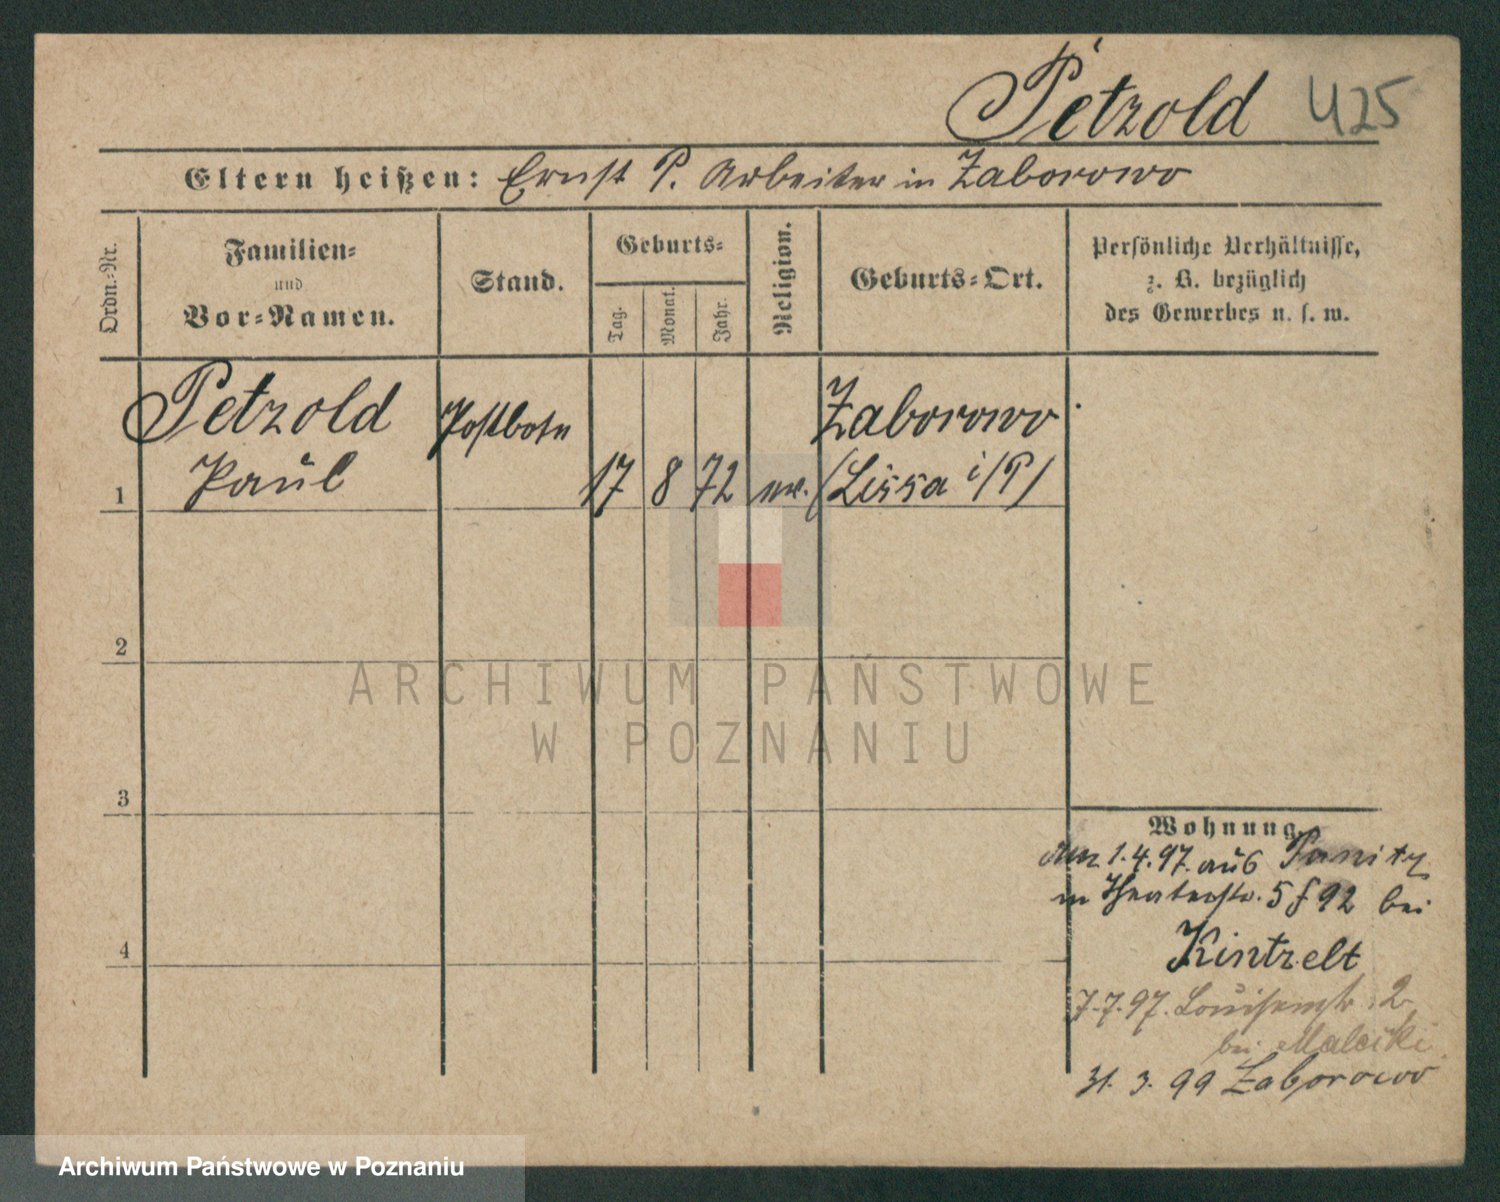 Petzold 425
Eltern heißen: Ernst P. Arbeiter in Zaborowo
Ordn.-Nr.
Familien-
und
Vor-Namen.
Stand.
Geburts-
Tag.
Monat.
Jahr.
Religion.
Geburts-Ort.
Persönliche Verhältnisse,
z. B. bezüglich
des Gewerbes u. s. w.
1
Petzold
Paul
Postbote
17 8 72 ev.
Zaborowo
(Lissa i/P)
2
3
4
Wohnung.
am 1.4.97. aus
in Theaterstr. 5 bei
Kintzelt
7.7.97. Louisenstr. 2
bei
31. 3. 99 Zaborowo
ARCHIWUM PAŃSTWOWE
W POZNANIU
Archiwum Państwowe w Poznaniu